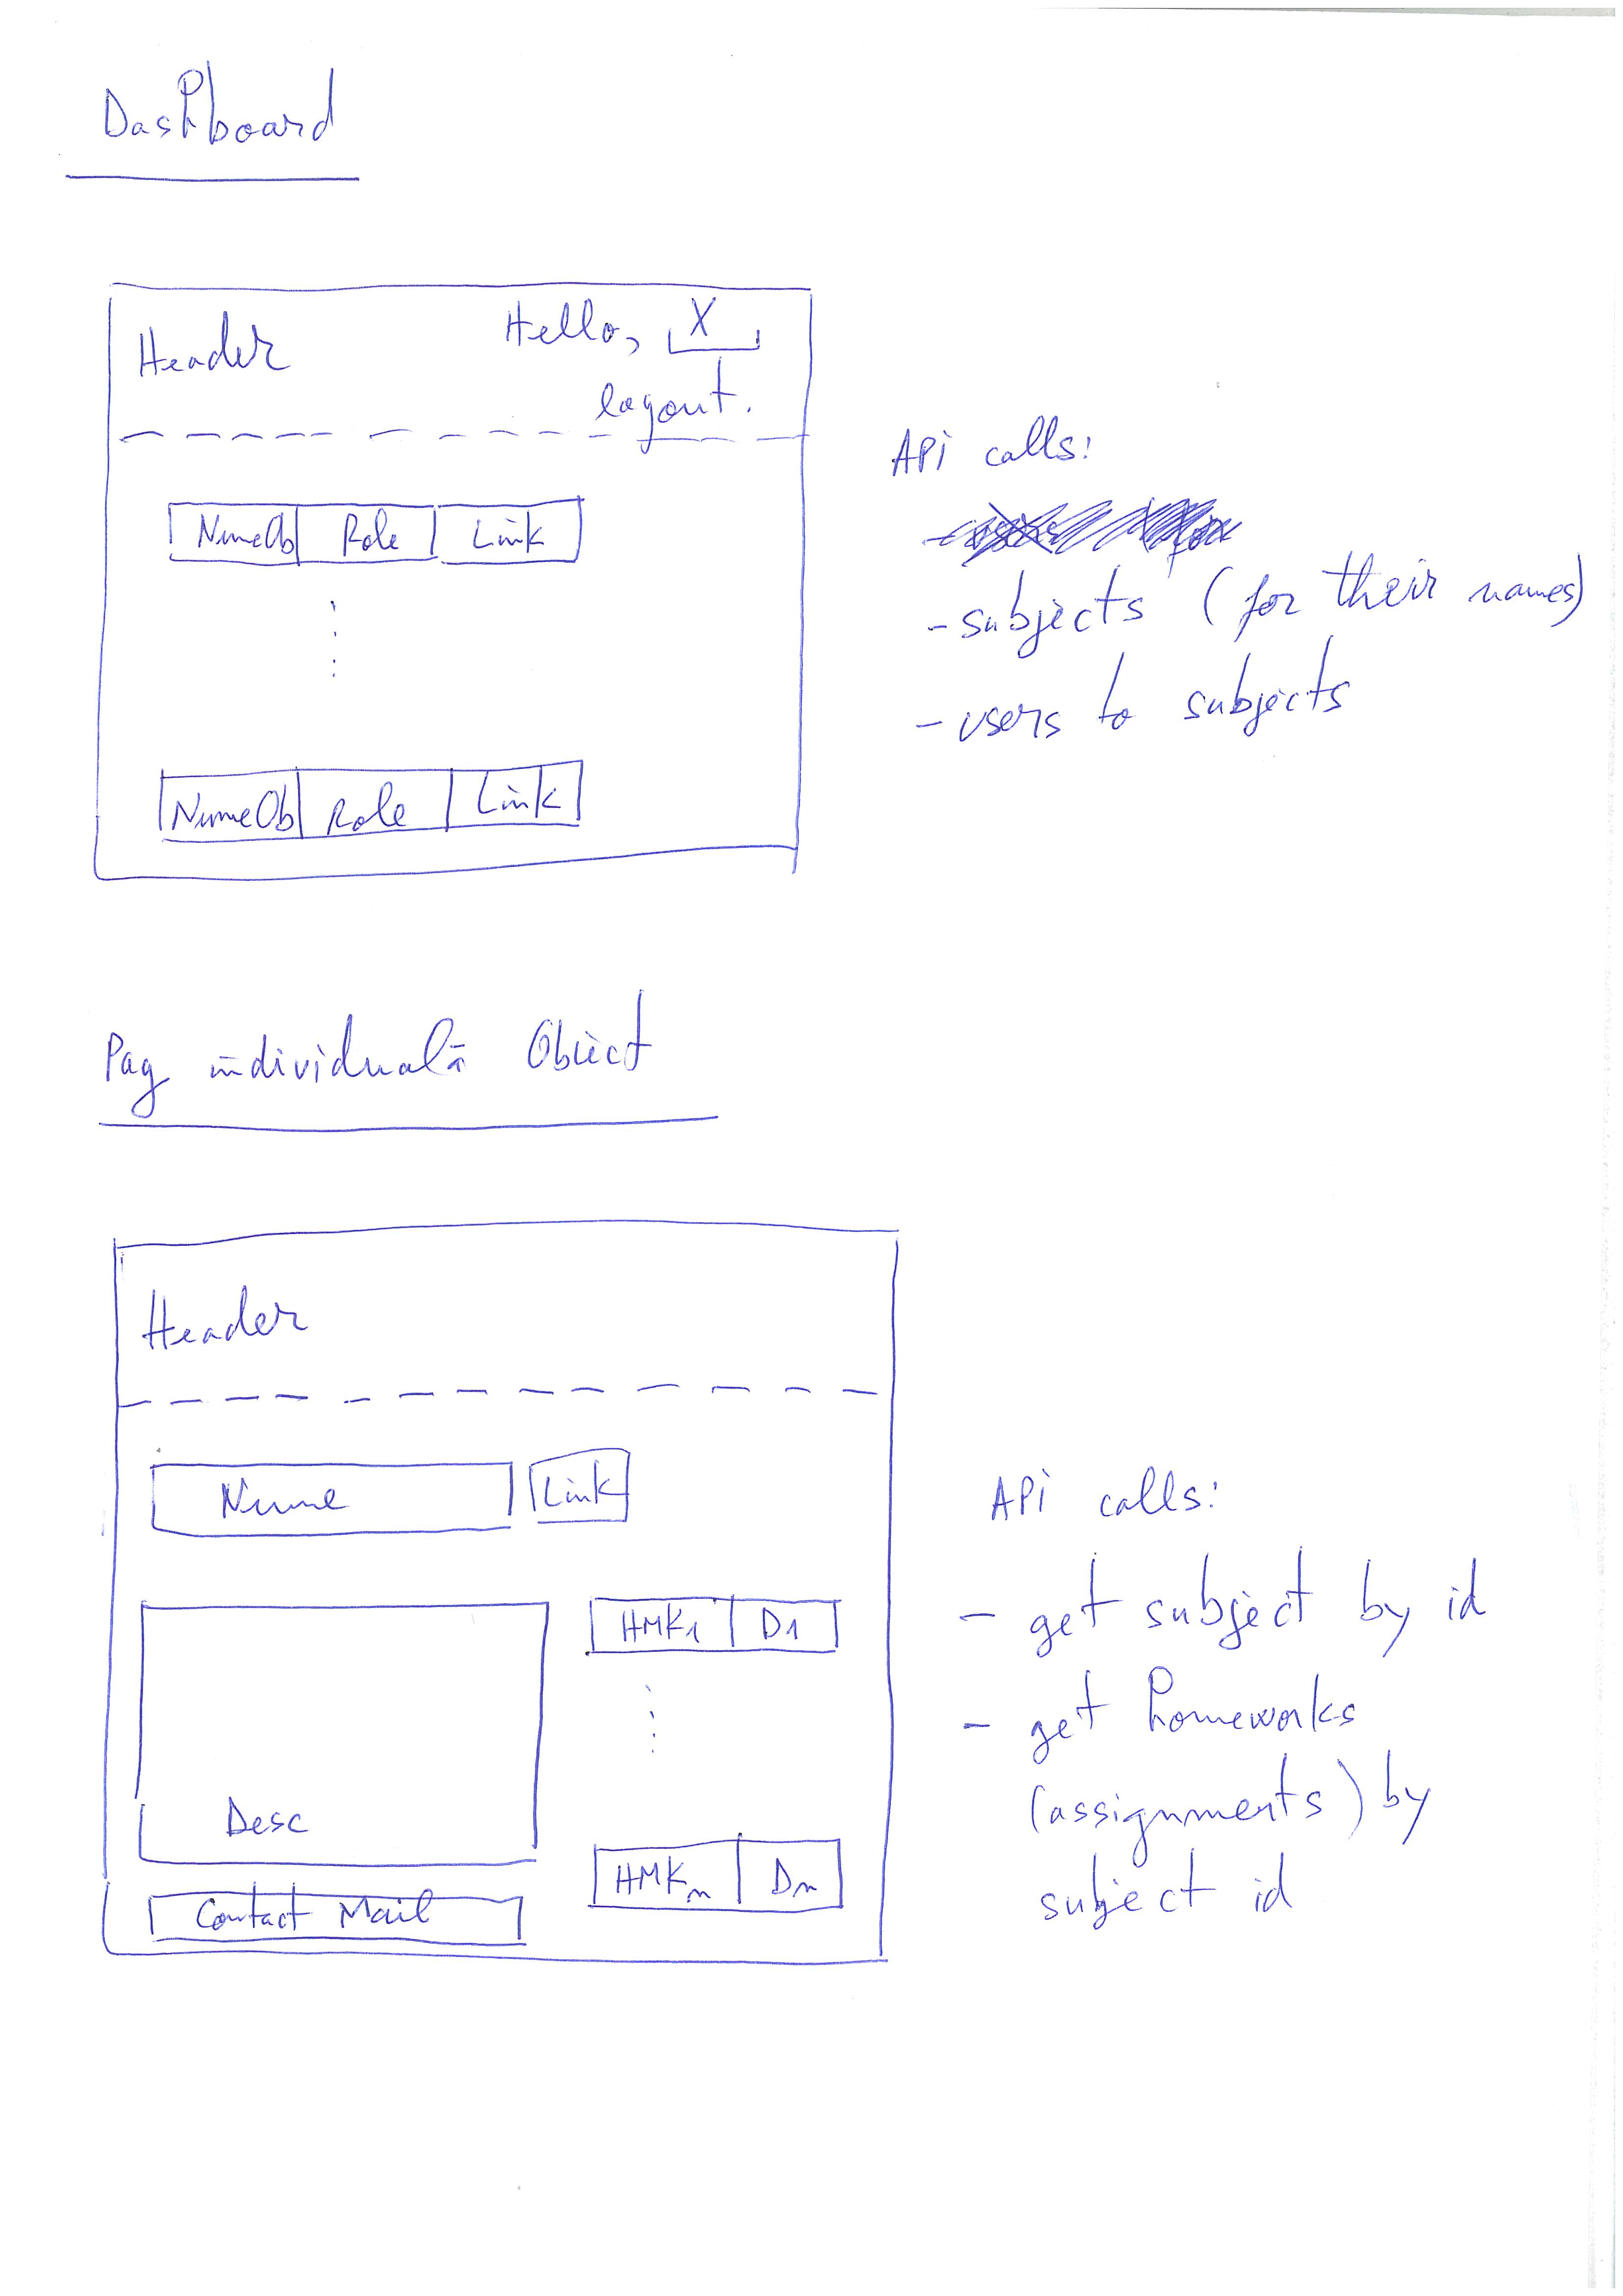 Dashboard
Header
Hello, X
logout.
NumeOb Role Link
NumeOb Role Link
Api calls:
- subjects (for their names)
- users to subjects
Pag individuală Obiect
Header
Nume Link
HMK1 D1
Desc
HMKn Dn
Contact Mail
Api calls:
- get subject by id
- get homeworks
(assignments) by
subject id